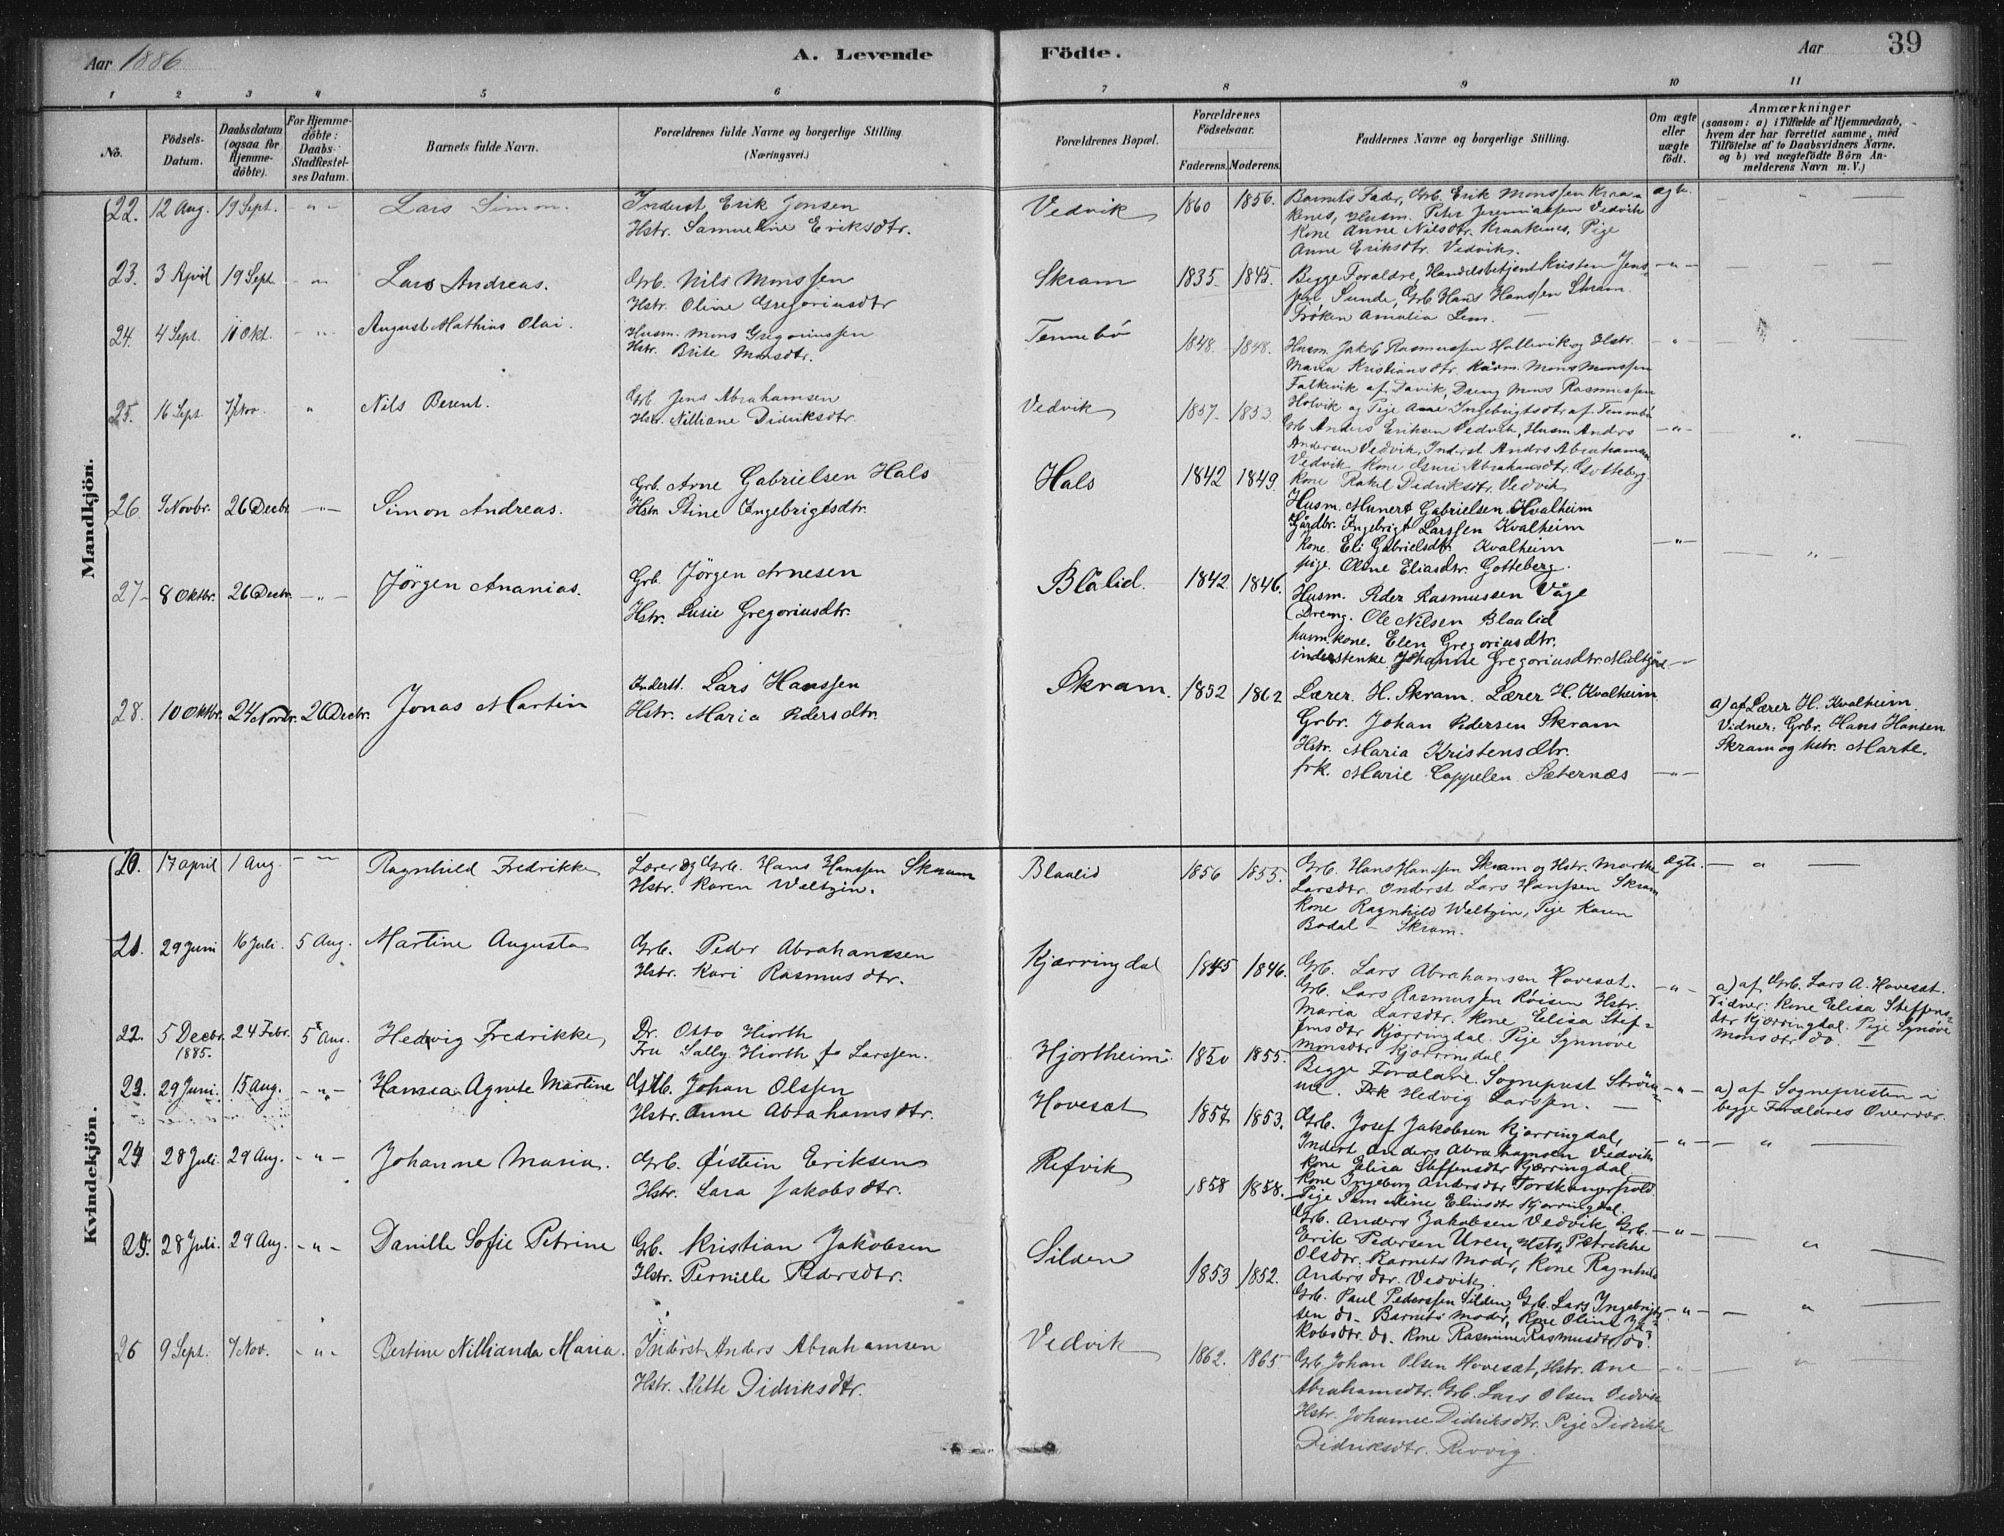 Aar 1886
A. Levende
Födte.
Aar
39
1 2 3 4 5 6 7 8 9 10 11
No.
Födsels-Datum.
Daabsdatum (ogsaa for Hjemme-döbte).
For Hjemme-döbte: Daabs-Stadfæstel-ses Datum.
Barnets fulde Navn.
Forældrenes fulde Navne og borgerlige Stilling. (Næringsvei.)
Forældrenes Bopæl.
Forældrenes Födselsaar.
Faderens. Moderens.
Faddernes Navne og borgerlige Stilling.
Om ægte eller uægte födt.
Anmærkninger
(saasom: a) i Tilfælde af Hjemmedaab,
hvem der har forrettet samme, med
Tilföielse af to Daabsvidners Navne.
og b) ved uægtefödte Börn An-
melderens Navn m. V.)
Mandkjön.
22. 12 Aug. 19 Sept. - " - Lars Simon. Inderst Erik Jonsen
Hstr. Samueline Eriksdtr.
Vedvik 1860 1856.
Barnets Fader, Grb. Erik Monssen Kraa-
kenes, Husm. Peter Jeremiassen Vedvik
Kone Anne Nilsdtr. Kraakenes, Pige
Anne Eriksdtr. Vedvik.
ægte
23. 3 April 19 Sept. - " - Lars Andreas. Grb. Nils Monssen
Hstr. Oline Gregoriusdtr
Skram 1835. 1845.
Begge Foraldre, Handelsbetjent Kristen Jens-
sen Sunde, Grb Hans Hanssen Skram.
Fröken Amalia Lem.
- " -
24. 4 Sept. 10 Okt. - " - August Mathias Olai. Husm. Mons Gregoriussen
Hstr. Brite Monsdtr.
Tennebö 1848. 1848.
Husm. Jakob Rasmussen Hallevik og Hstr.
Maria Kristiansdtr. Husm. Mons Monssen
Falkevik af Davik, Dreng Mons Rasmussen
Holvik og Pige Anne Ingebrigtsdtr. af Tennebö
- " -
25. 16 Sept. 7 Nov. " Nils Berent. Grb. Jens Abrahamsen
Hstr. Nilliane Didriksdtr.
Vedvik 1857. 1853
Grb Anders Eriksen Vedvik, Husm Anders
Andersen Vedvik, Inderst Anders Abrahamsen
Vedvik Kone Guri Abrahamsdtr. Gotteberg
Kone Rakel Didriksdtr. Vedvik
- " -
26 9 Novbr. 26 Decbr. - " - Simon Andreas. Grb. Arne Gabrielsen Hals
Hstr. Stine Ingebrigtsdtr.
Hals 1842 1849.
Husm. Munert Gabrielsen Hvalheim
Gårdbr. Ingebrigt Larssen Kvalheim
Kone. Eli Gabrielsdtr. Kvalheim
pige. Oline Eliasdtr. Gotteberg.
- " -
27- 8 Oktbr. 26 Decbr. - " - Jörgen Ananias. Grb. Jörgen Arnesen
Hstr. Lusie Gregoriusdtr.
Blålid. 1842 1846.
Husm. Peder Rasmussen Våge
Dreng. Ole Nilsen Blaalid
husm.kone. Elen Gregoriusdtr.
inderstenke. Johanne Gregoriusdtr. Moltgård
- " -
28. 10 Oktbr. 24 Novbr. 26 Decbr. Jonas Martin Inderst. Lars Hanssen
Hstr. Maria Pedersdtr.
Skram. 1852 1862
Lærer. H. Skram. Lærer H. Kvalheim
Grbr. Johan Pedersen Skram
Hstr. Maria Kristensdtr.
frk. Marie Cappelen. Sæternæs
- " -
a) af Lærer H. Kvalheim.
Vidner: Grbr. Hans Hansen
Skram og hstr. Marte.
Kvindekjön.
20. 17 april 1 Aug. - " - Ragnhild Fredrikke Lærer og Grb. Hans Hanssen Skram
Hstr. Karen Weltzin.
Blaalid 1856 1855.
Grb. Hans Hanssen Skram og Hstr. Marthe
Larsdtr. Inderst Lars Hanssen Skram
Kone Ragnhild Weltzin, Pige Karen
Bodal - Skram.
ægte.
21. 29 Juni 16 Juli. 5 Aug. Martine Augusta Grb. Peder Abrahamsen
Hstr. Kari Rasmusdtr.
Kjærringdal 1845 1846.
Grb. Lars Abrahamsen Hovesæt.
Grb. Lars Rasmussen Röisen Hstr.
Maria Larsdtr. Kone Elisa Stef-
fensdtr Kjærringdal. Pige Synnöve
Monsdtr Kjærringdal.
- " -
a) af Grb. Lars A. Hovesæt.
Vidner: Kone Elisa Steffens-
dtr Kjærringdal. Pige Synöve
Monsdtr do.
22. 5 Decbr. 1885. 24 Febr. 5 Aug. Hedvig Fredrikke Dr. Otto Hiorth
Fru Sally Hiorth f. Larssen.
Hjortheim 1850 1855.
Begge Forældre. Sogneprest Ström-
me. Frk Hedvig Larssen.
- " -
a) af Sognepresten i
begge Forældres Overvær.
23. 29 Juni. 15 Aug. - " - Hansea Agnete Martine Grb. Johan Olssen
Hstr. Anne Abrahamsdtr.
Hovesæt 1857 1853.
Grb. Josef Jakobsen Kjærringdal,
Inderst Anders Abrahamsen Vedvik
Kone Elisa Steffensdtr Kjærringdal
Kone Ingeborg Andersdtr Torskangerpold
Pige Samueline Eliasdtr Kjærringdal.
- " -
24. 28 Juli. 29 Aug. - " - Johanne Maria. Grb. Öistein Eriksen
Hstr. Lara Jakobsdtr.
Refvik 1858 1858.
Grb. Anders Jakobsen Vedvik, Grb.
Erik Pedersen Uren, Hstr. Petrikke
Olsdtr. Barnets Moder, Kone Ragnhild
Andersdtr. Vedvik.
- " -
25. 28 Juli. 29 Aug. - " - Danille Sofie Petrine Grb. Kristian Jakobsen
Hstr. Pernille Pedersdtr.
Silden 1853 1852.
Grb. Paul Pederssen Silden, Grb. Lars Ingebrigt-
sen do. Barnets Moder, Kone Oline Ja-
kobsdtr. do. Kone Rasmine Rasmusdtr do.
- " -
26 9 Sept. 7 Nov. - " - Bertine Nillianda Maria. Inderst Anders Abrahamsen
Hstr. Mette Didriksdtr.
Vedvik 1862. 1865
Grb Johan Olsen Hovesæt, Hstr. Ane
Abrahamsdtr. Grb. Lars Olsen Vedvik
Hstr. Johanne Didriksdtr. Pige Didrikke
Didriksdtr. Revvig.
- " -